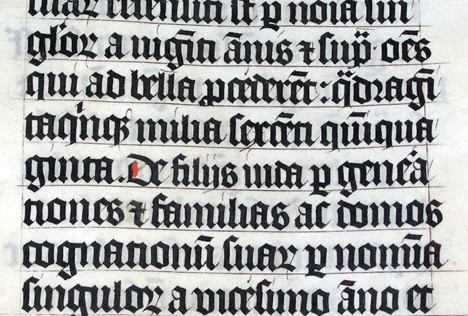 recensiti st p noia sin
gulor a viginti ānis ⁊ sup̄ oēs
qui ad bella p̄cederēt : q̄dragī
taqinq3 milia sexcēti quīqua
ginta. De filijs iuda p gen̄a
tiones ⁊ familias ac domos
cognationū suar p nomīa
singulor a vicesimo āno et